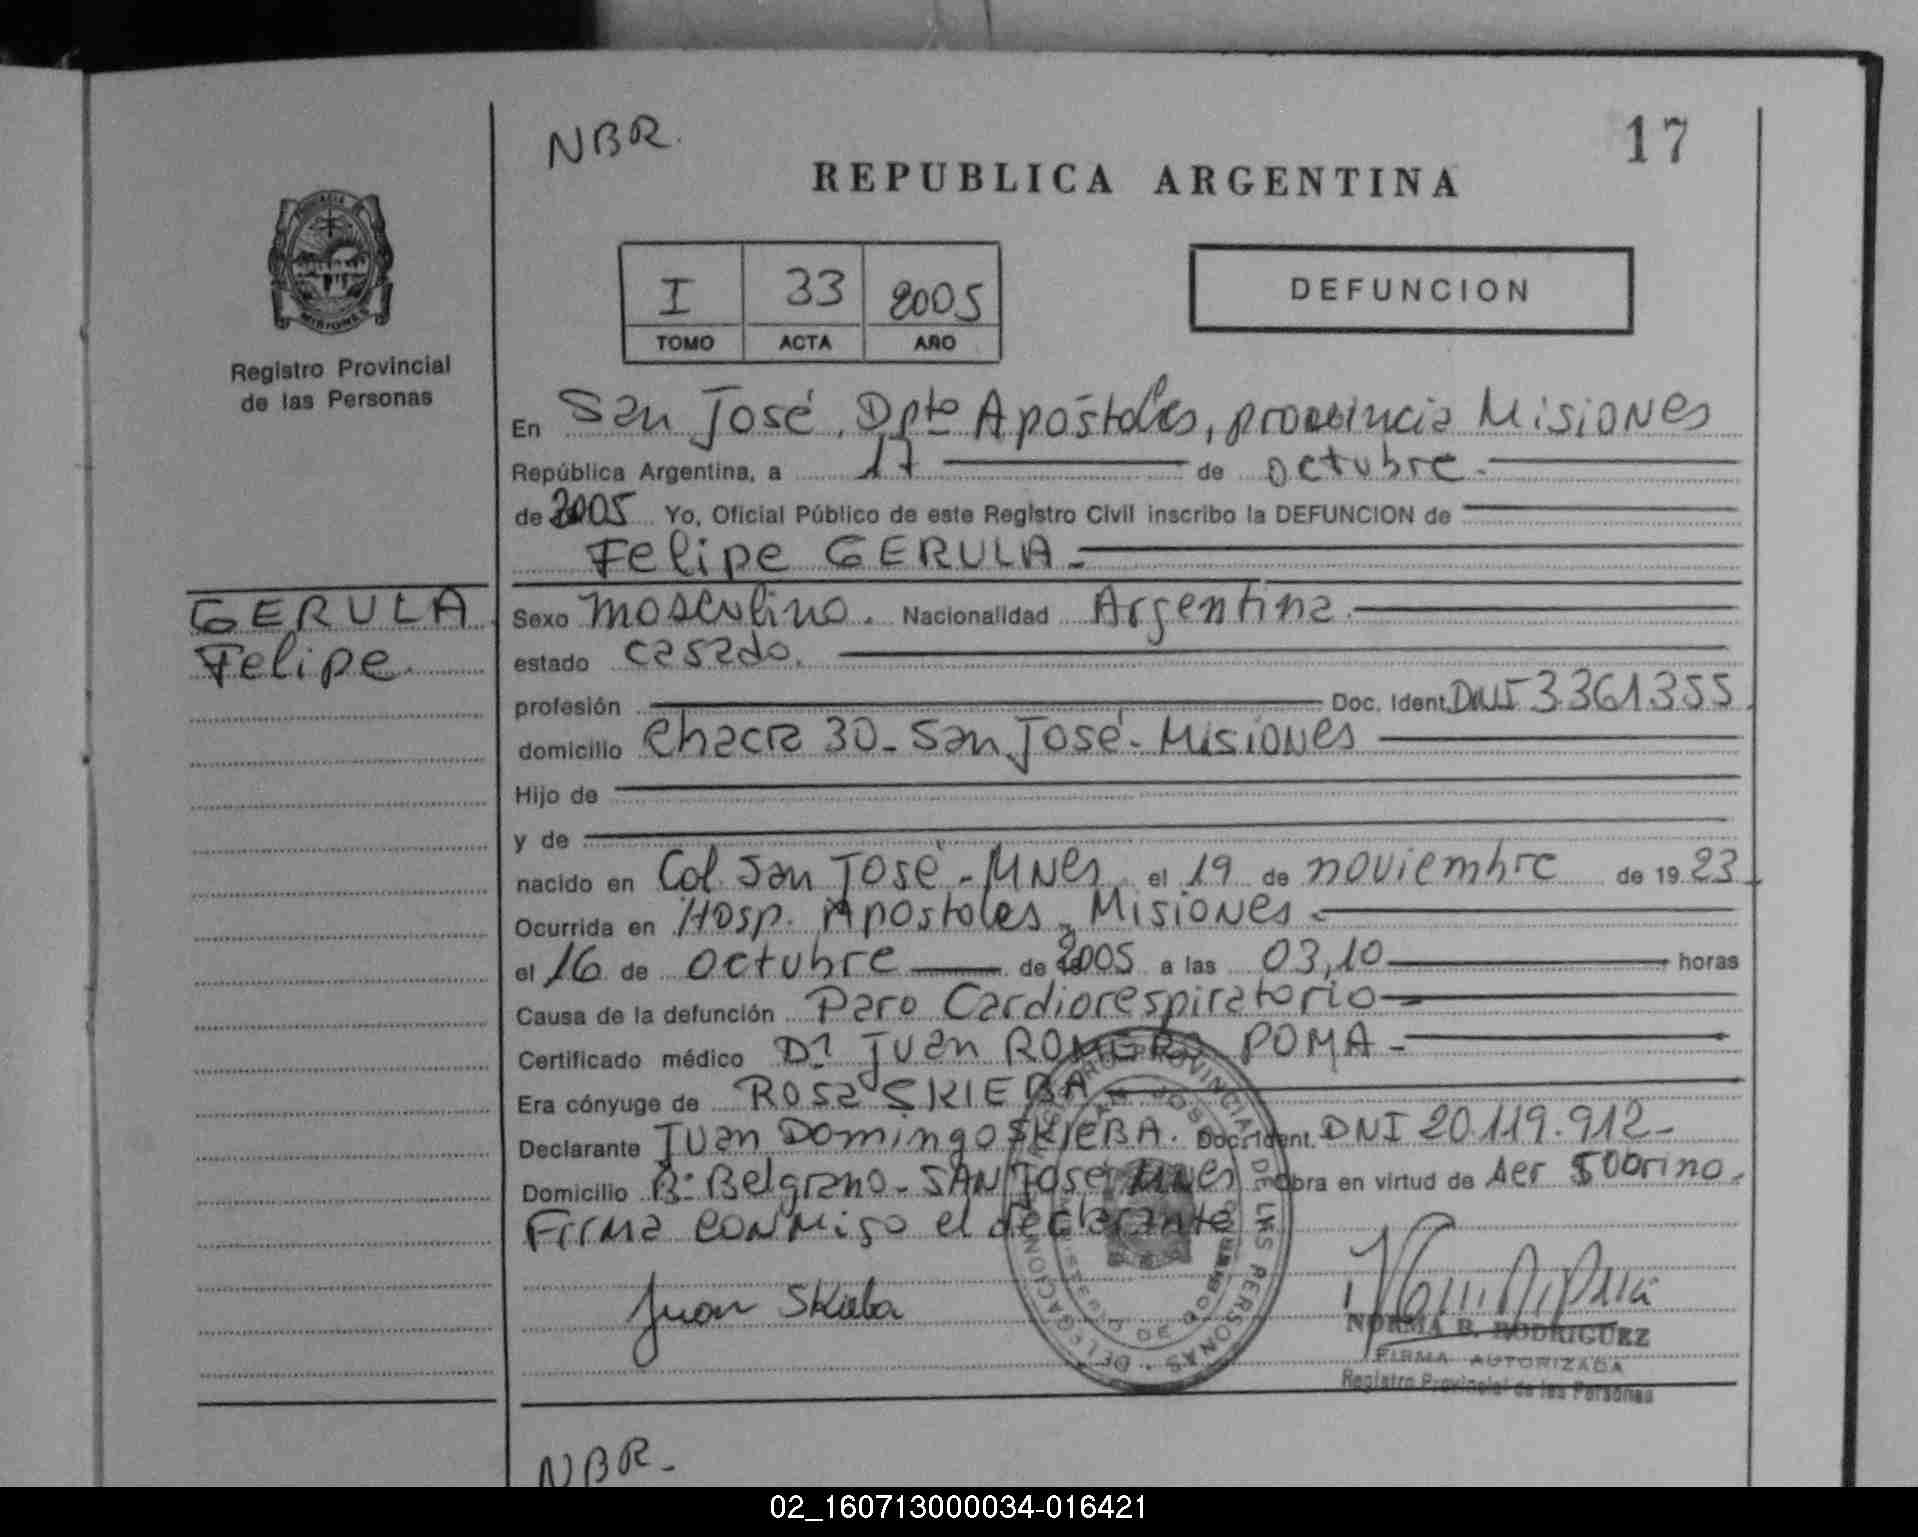 NBR.
17
REPUBLICA ARGENTINA
MISIONES
Registro Provincial
de las Personas
I 33 2005
TOMO ACTA AÑO
DEFUNCION
En San José, Dpto Apóstoles, provincia Misiones
República Argentina, a 17 de octubre.
de 2005 Yo, Oficial Público de este Registro Civil inscribo la DEFUNCION de
Felipe GERULA.
GERULA
Felipe.
Sexo masculino. Nacionalidad Argentina.
estado casado.
profesión Doc. Ident. DNI 3361355
domicilio Chacra 30 - San José - Misiones
Hijo de
y de
nacido en Col San José - Mnes el 19 de noviembre de 19 23
Ocurrida en Hosp. Apostoles, Misiones.
el 16 de octubre de 2005 a las 03,10 horas
Causa de la defunción Paro Cardiorespiratorio
Certificado médico Dr. Juan ROMERO POMA -
Era cónyuge de Rosa SKIEBA
Declarante Juan Domingo SKIEBA. Doc. Ident. DNI 20.119.912-
Domicilio B: Belgrano - SAN José Mnes Obra en virtud de ser sobrino.
Firma conmigo el declarante
Juan Skieba
NORMA B. RODRIGUEZ
FIRMA AUTORIZADA
Registro Provincial de las Personas
REGISTRO PROVINCIAL DE LAS PERSONAS · DELEGACION
NBR.
02_160713000034-016421